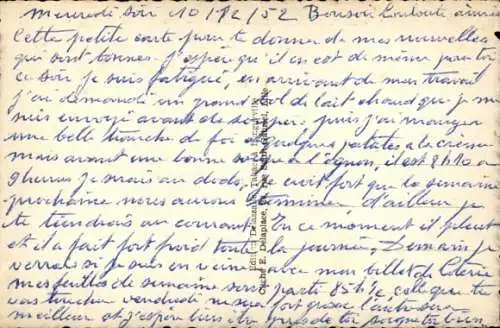 Mercredi soir 10/12/52 Bonsoir
Cette petite carte pour te donner de mes nouvelles
qui sont bonnes. J'espère qu'il en est de même pour toi
ce soir je suis fatigué, en arrivant de mon travail
j'ai demandé un grand bol de lait chaud que je me
suis envoyé avant de souper puis j'ai manger
une belle tranche de foie quelques patates a la crème
mais avant une bonne a l'ognon, il est 8h10 a
9 heures je serais au dodo, Je crois fort que la semaine
prochaine nous aurons terminer d'ailleurs je
te tiendrais au courant. En ce moment il pleut
et il a fait fort froid toute la journée, Demain je
verrai si je suis en veine avec mon billet de loterie
mes feuilles de semaine sont parti 85h½, celle que tu
vas toucher vendredi ne sera fort grosse l'autre sera
meilleur et j'espère bien que
Cliché E. Delaplace